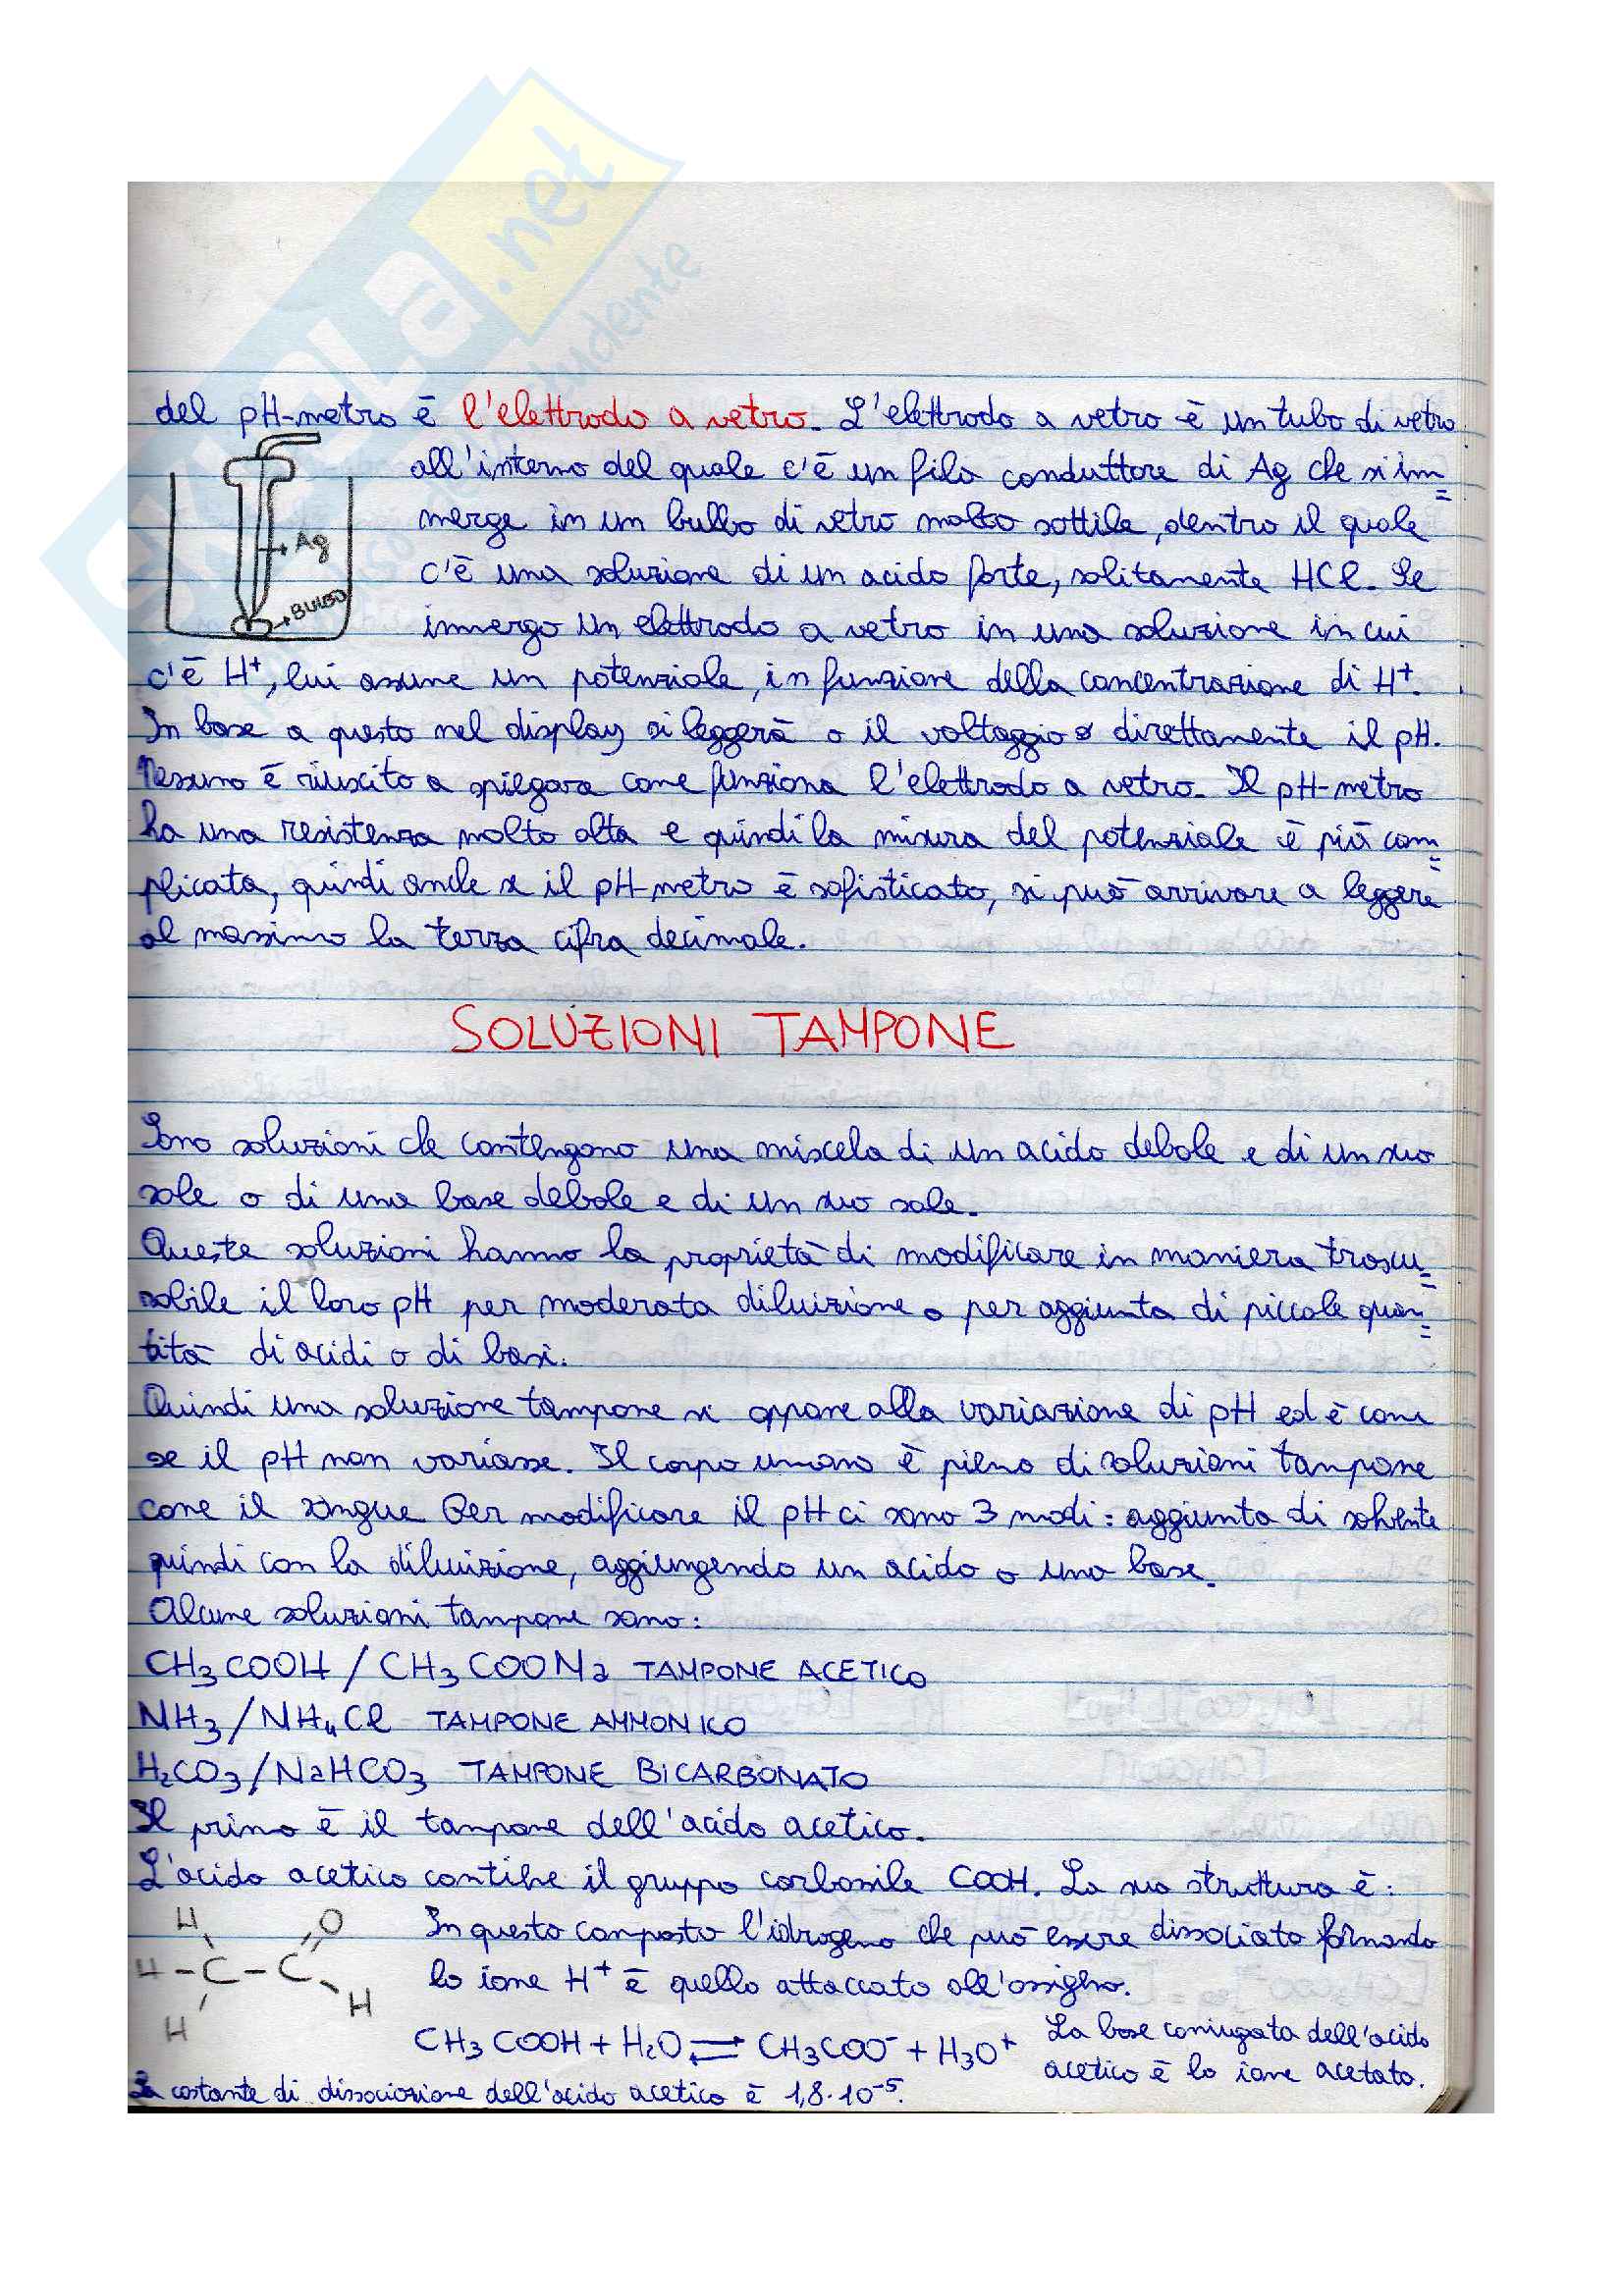 del pH-metro è l'elettrodo a vetro. L'elettrodo a vetro è un tubo di vetro
all'interno del quale c'è un filo conduttore di Ag che si im=
merge in un bulbo di vetro molto sottile, dentro il quale
c'è una soluzione di un acido forte, solitamente HCl. Se
immergo un elettrodo a vetro in una soluzione in cui
c'è H⁺, lui assume un potenziale, in funzione della concentrazione di H⁺.
In base a questo nel display si leggerà o il voltaggio o direttamente il pH.
Nessuno è riuscito a spiegare come funziona l'elettrodo a vetro. Il pH-metro
ha una resistenza molto alta e quindi la misura del potenziale è più com=
plicata, quindi anche se il pH-metro è sofisticato, si può arrivare a leggere
al massimo la terza cifra decimale.
Ag
BULBO
SOLUZIONI TAMPONE
Sono soluzioni che contengono una miscela di un acido debole e di un suo
sale o di una base debole e di un suo sale.
Queste soluzioni hanno la proprietà di modificare in maniera trascu=
rabile il loro pH per moderata diluizione o per aggiunta di piccole quan=
tità di acidi o di basi.
Quindi una soluzione tampone si oppone alla variazione di pH ed è come
se il pH non variasse. Il corpo umano è pieno di soluzioni tampone
come il sangue Per modificare il pH ci sono 3 modi: aggiunta di solvente
quindi con la diluizione, aggiungendo un acido o una base.
Alcune soluzioni tampone sono:
CH₃COOH / CH₃COONa TAMPONE ACETICO
NH₃/NH₄Cl TAMPONE AMMONICO
H₂CO₃/NaHCO₃ TAMPONE BICARBONATO
Il primo è il tampone dell'acido acetico.
L'acido acetico contiene il gruppo carbossile COOH. La sua struttura è:
H O
H - C - C
H H
In questo composto l'idrogeno che può essere dissociato formando
lo ione H⁺ è quello attaccato all'ossigeno.
CH₃COOH + H₂O ⇌ CH₃COO⁻ + H₃O⁺
La base coniugata dell'acido
acetico è lo ione acetato.
La costante di dissociazione dell'acido acetico è 1,8·10⁻⁵.
SKUOLA.net